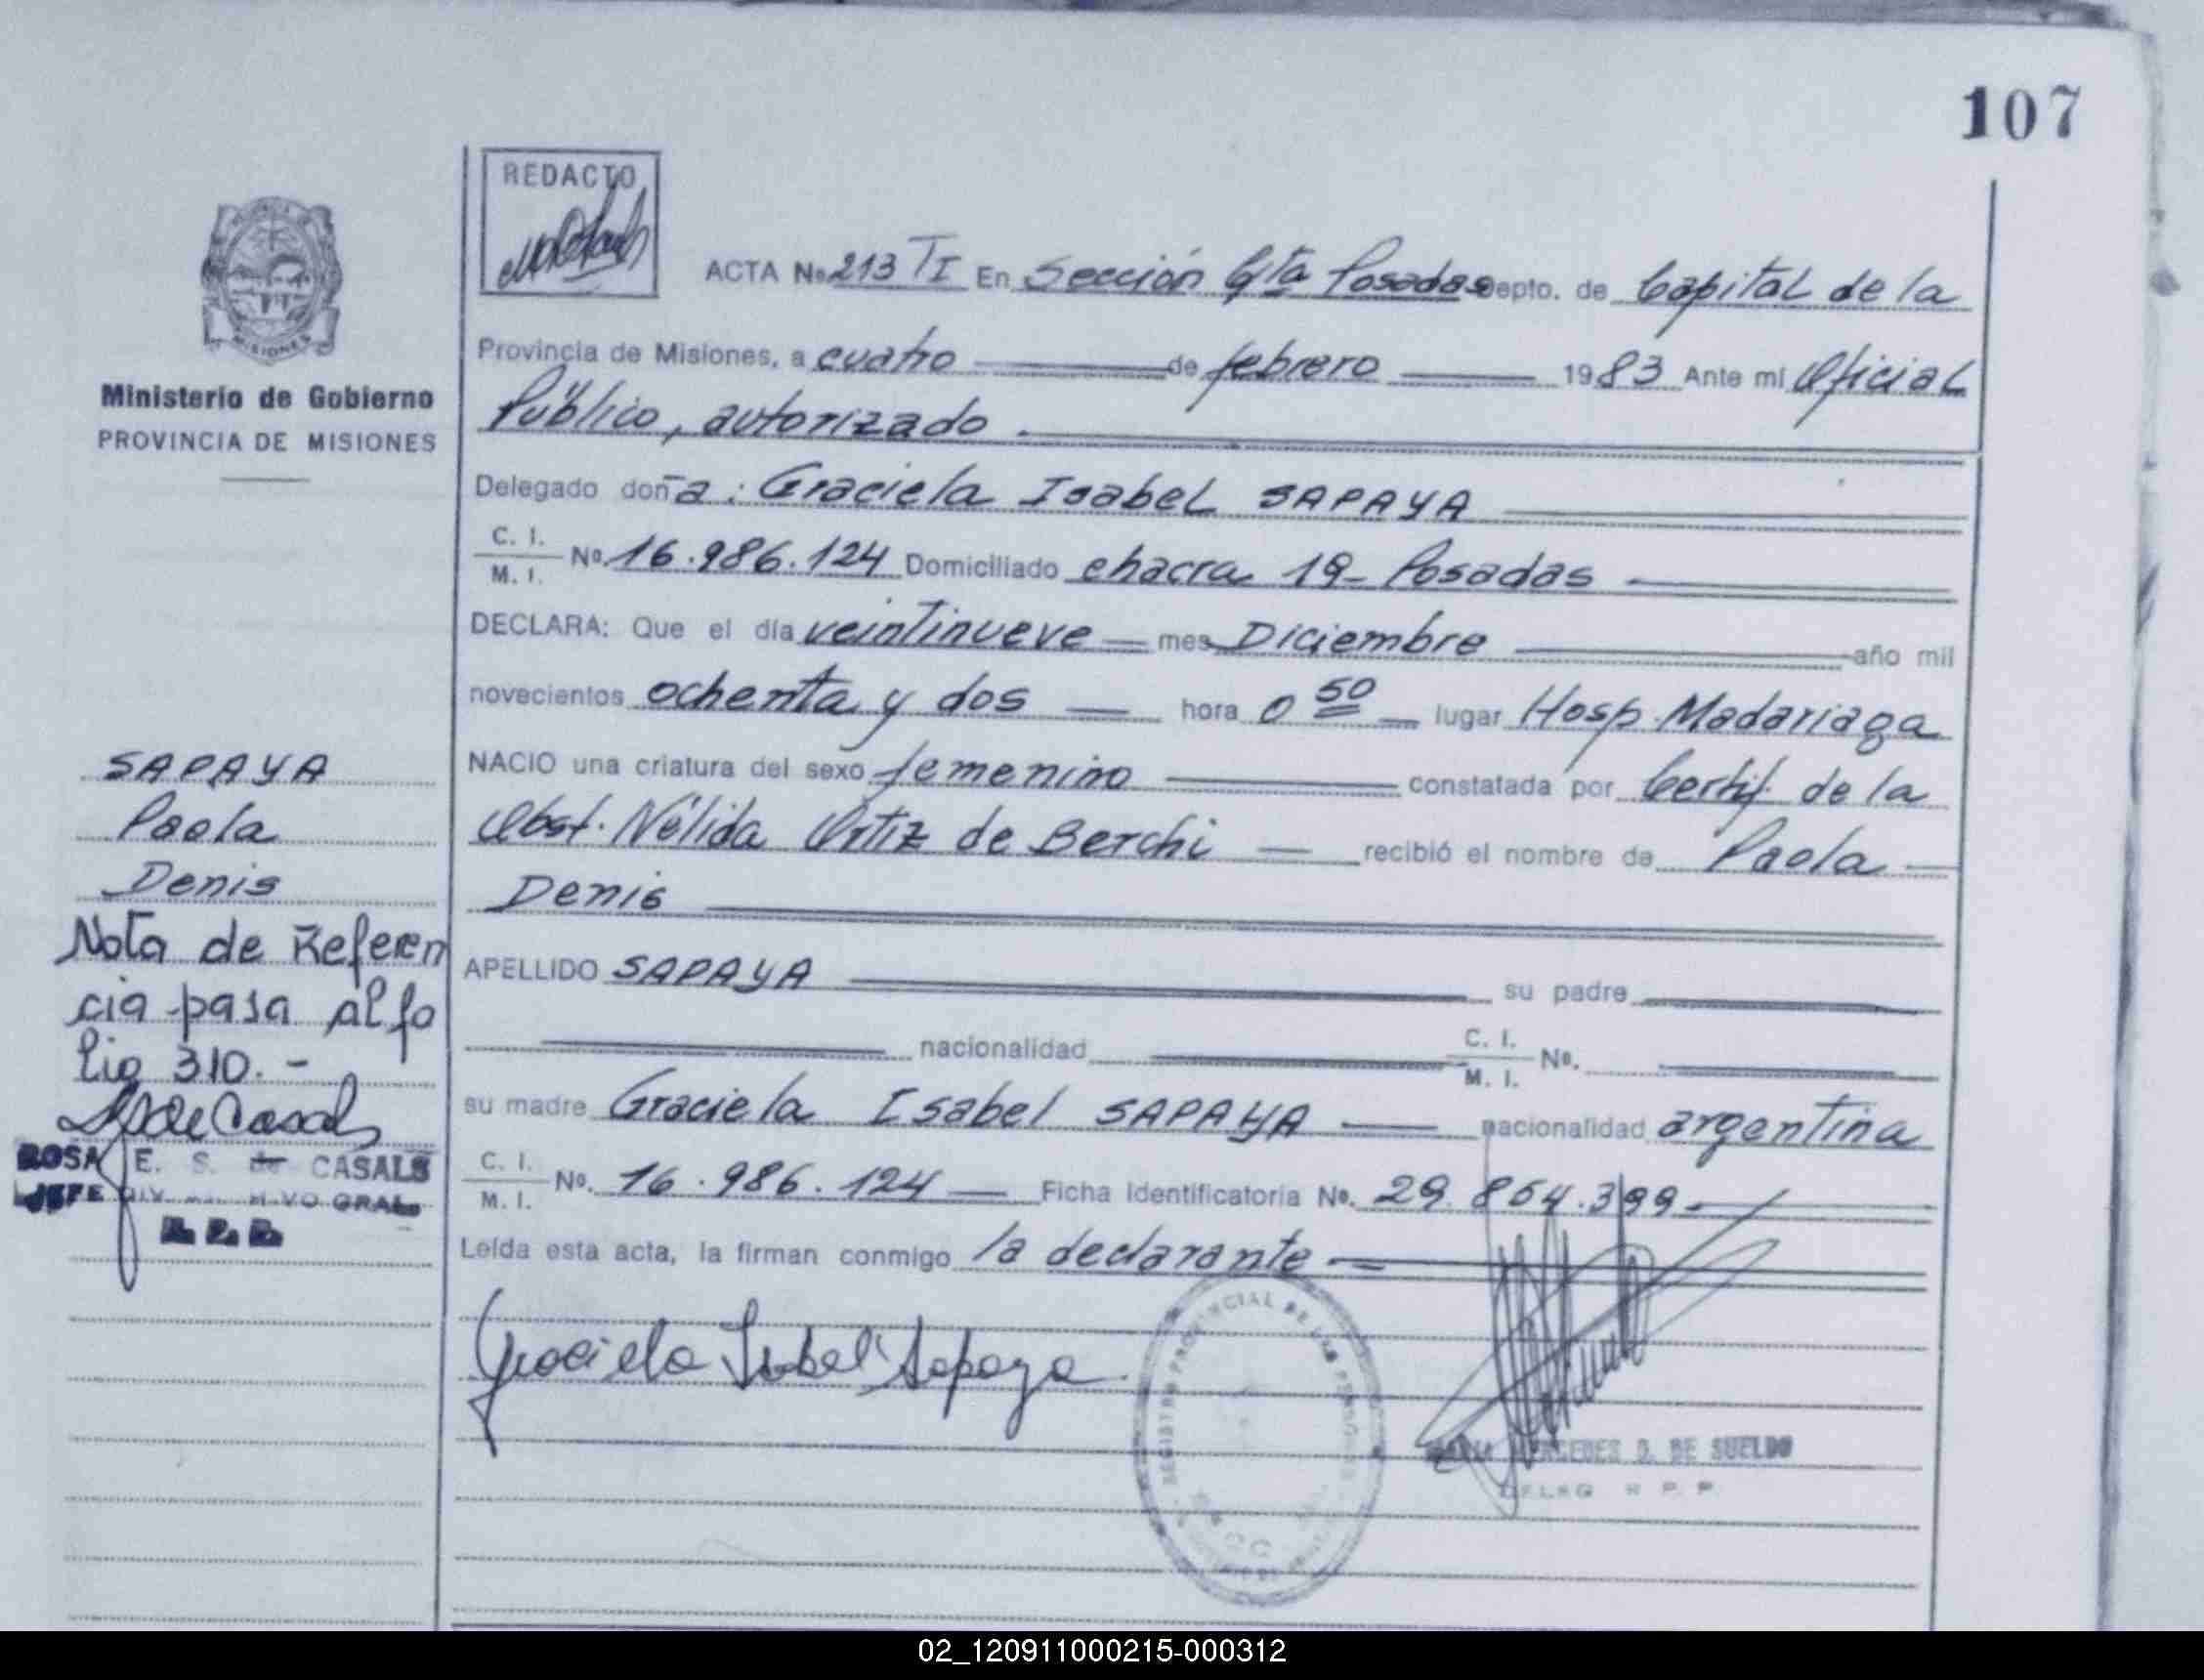 107
REDACTO
MISIONES
Ministerio de Gobierno
PROVINCIA DE MISIONES
ACTA No. 213 TI En Sección 6ta Posadas Depto. de Capital de la
Provincia de Misiones, a cuatro de febrero 1983 Ante mi Oficial
Público, autorizado.
Delegado doña: Graciela Isabel SAPAYA
C. I.
M. I. No. 16.986.124 Domiciliado chacra 19- Posadas
DECLARA: Que el día veintinueve mes Diciembre año mil
novecientos ochenta y dos hora 0 50 lugar Hosp. Madariaga
NACIO una criatura del sexo femenino constatada por Certif. de la
Obst. Nélida Ortiz de Berchi recibió el nombre de Paola
Denis
APELLIDO SAPAYA su padre
nacionalidad C. I. M. I. No.
su madre Graciela Isabel SAPAYA nacionalidad argentina
C. I.
M. I. No. 16.986.124 Ficha Identificatoria No. 29.854.399
Leída esta acta, la firman conmigo la declarante
Graciela Isabel Sapaya
MERCEDES D. DE SUELDO
DELEG R P. P.
SAPAYA
Paola
Denis
Nota de Referen
cia pasa al fo
lio 310.-
ROSA E. S. de CASALS
JEFE GRAL
02_120911000215-000312